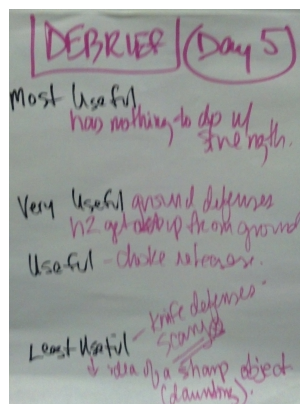 DEBRIEF (Day 5)
Most Useful
has nothing to do w/
strength.
Very Useful ground defenses
h2 get up from ground
Useful - choke release.
Least Useful - knife defenses -
scary
↓ idea of a sharp object
(daunting).